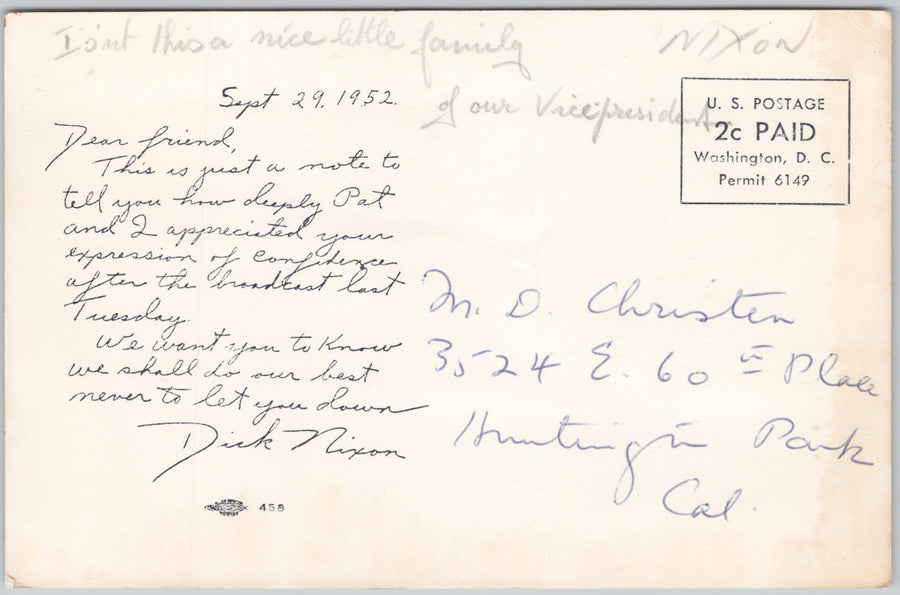 Isnt this a nice little family
NIXON
of our Vicepresident
U. S. POSTAGE
2c PAID
Washington, D. C.
Permit 6149
Sept 29, 1952.
Dear friend,
This is just a note to
tell you how deeply Pat
and I appreciated your
expression of confidence
after the broadcast last
Tuesday.
We want you to know
we shall do our best
never to let you down
Dick Nixon
458
M. D. Christen
3524 E. 60 Place
Huntington Park
Cal.